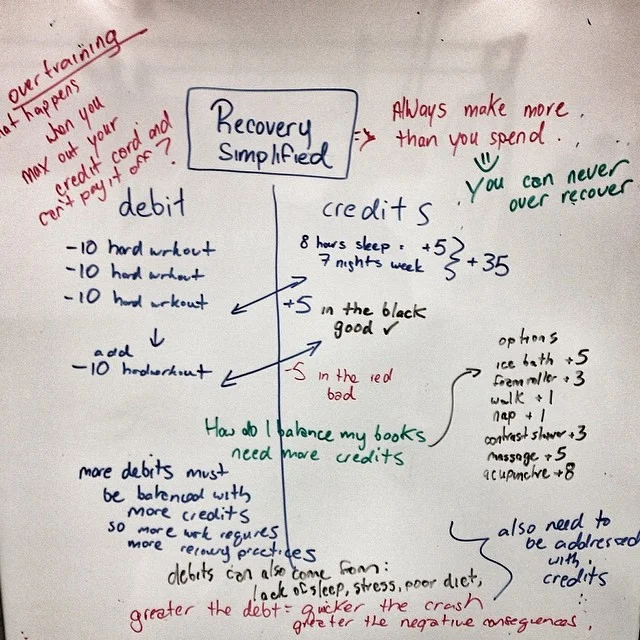 overtraining
what happens
when you
max out your
credit cord and
can't pay it off?
Recovery
Simplified
⇒ Always make more
than you spend
You can never
over recover
debit
credits
-10 hard wrkout
-10 hard wrkout
-10 hard workout
↓
add
-10 hardworkout
8 hours sleep = +5
7 nights week
+35
+5 in the black
good ✓
-5 in the red
bad
How do I balance my books
need more credits
options
ice bath +5
foam roller +3
walk +1
nap +1
contrast shower +3
massage +5
acupunctre +8
more debits must
be balenced with
more credits
so more work requres
more recovery practices
debits can also come from:
lack of sleep, stress, poor diet,
also need to
be addressed
with
credits
greater the debt = quicker the crash
greater the negative consequences.